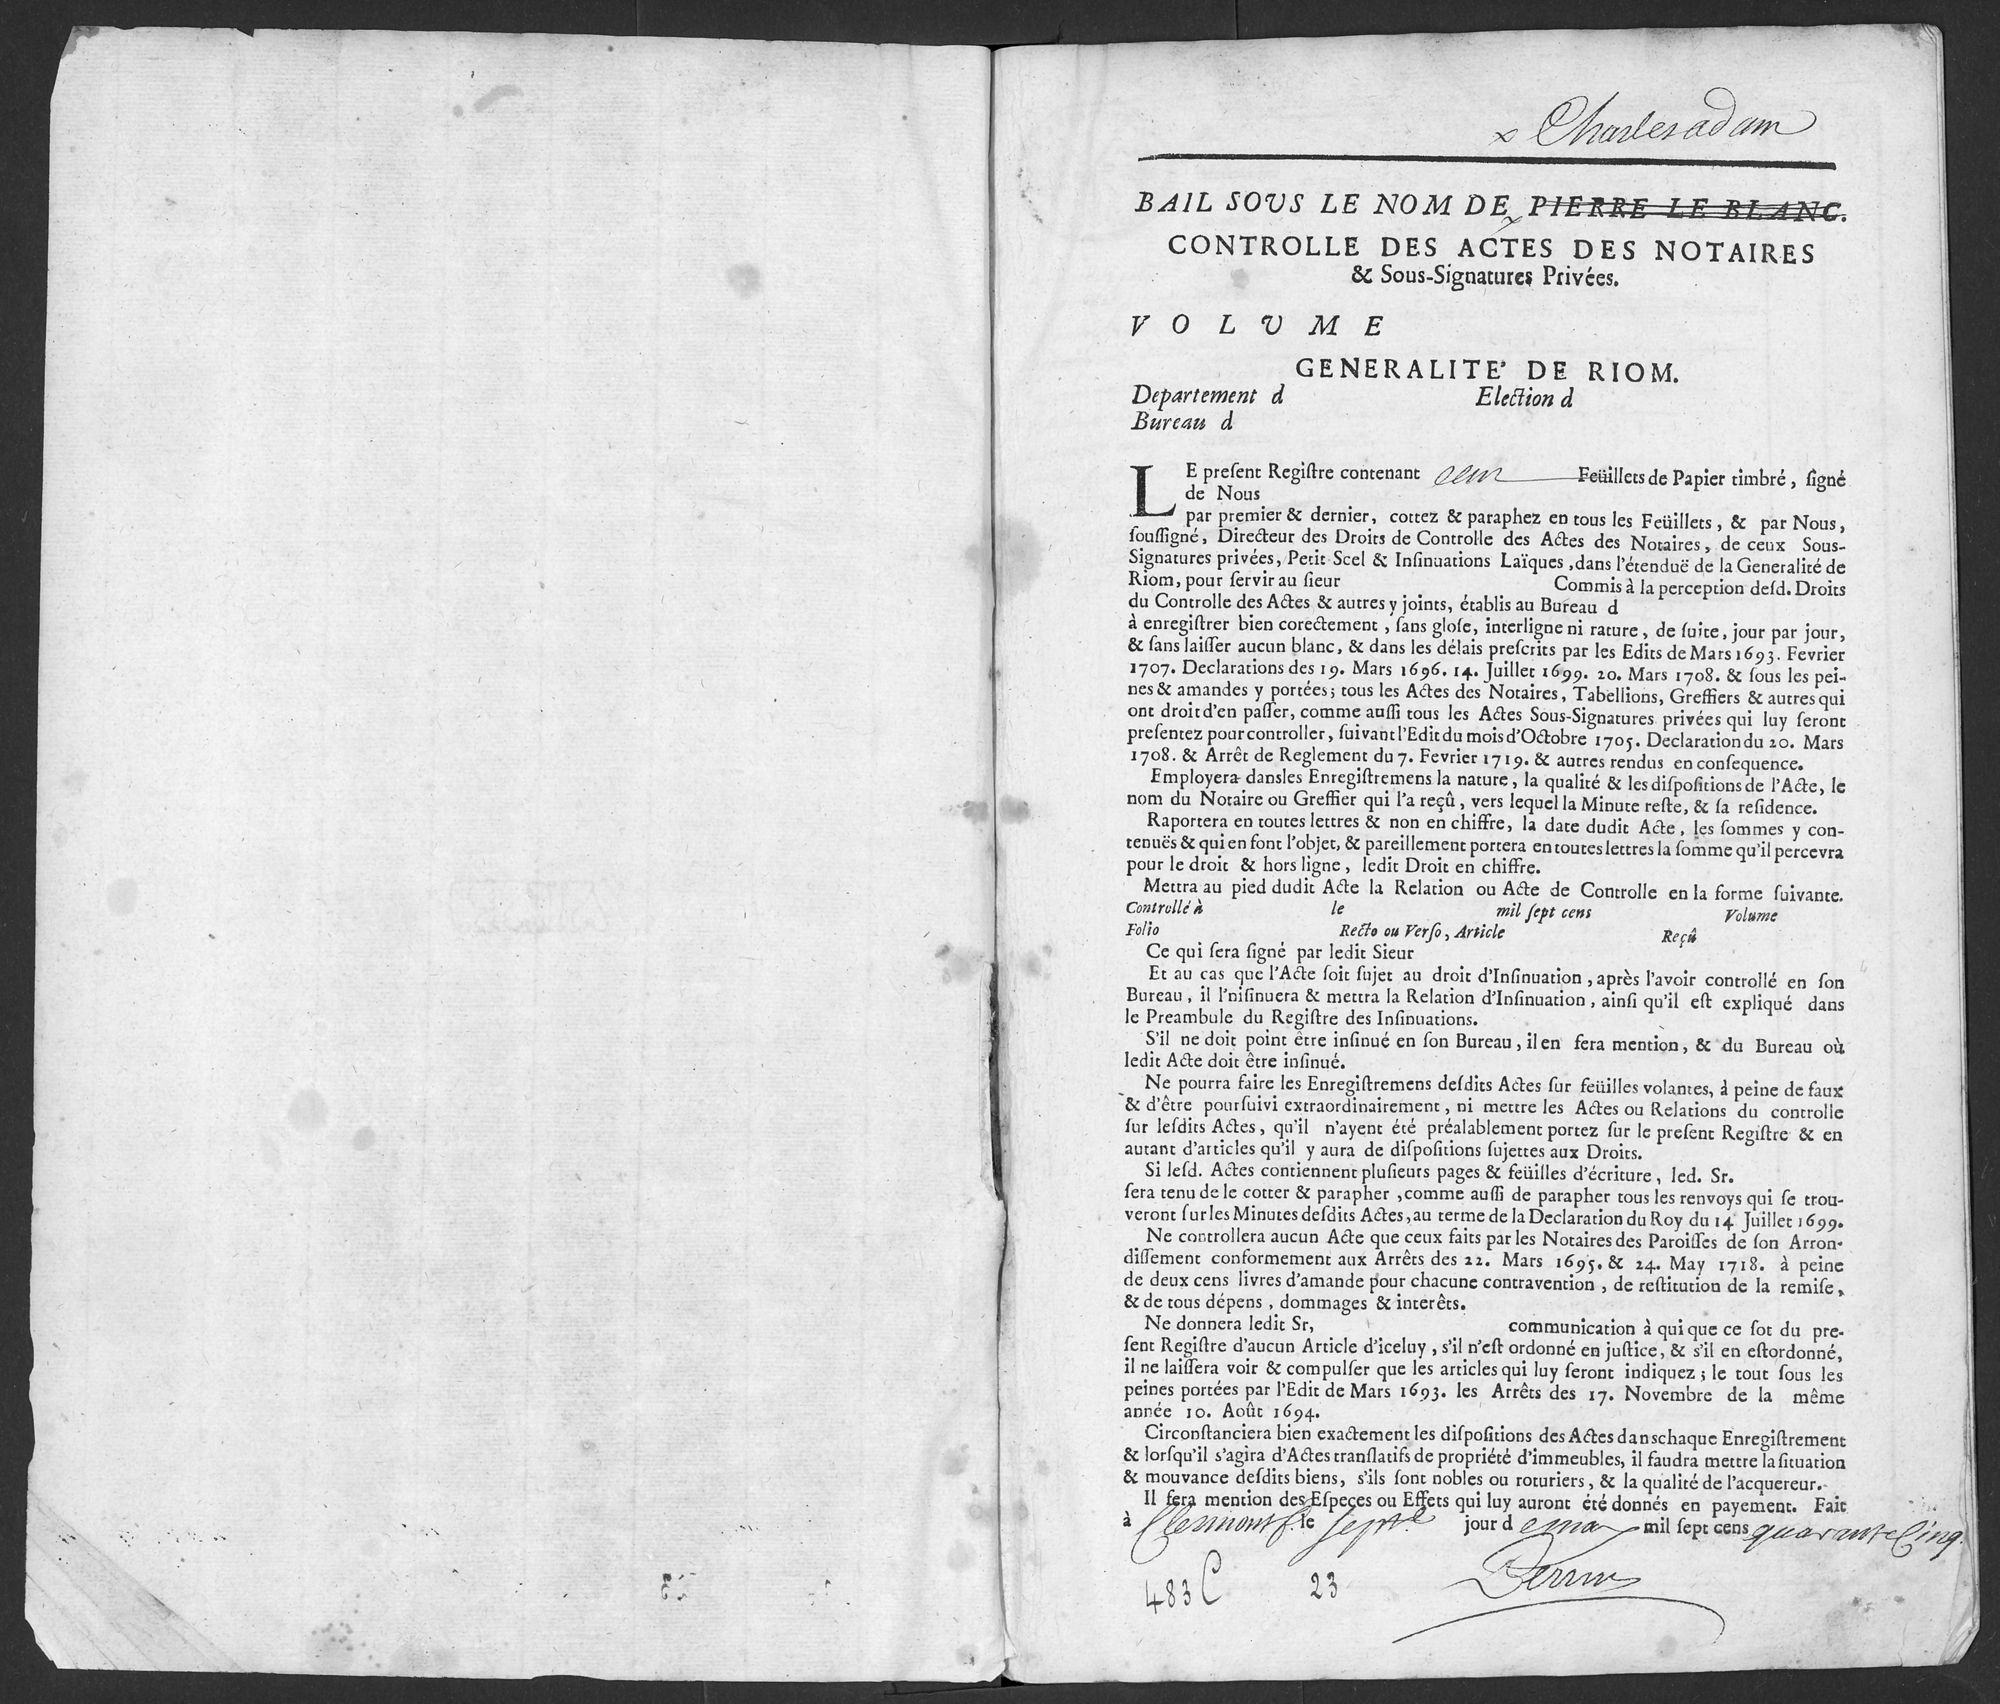 x Charles adam
BAIL SOUS LE NOM DE PIERRE LE BLANC.
CONTROLLE DES ACTES DES NOTAIRES
& Sous-Signatures Privées.
VOLUME
GENERALITE' DE RIOM.
Departement d Election d
Bureau d
LE preſent Regiſtre contenant cent Feüillets de Papier timbré, ſigné
de Nous
par premier & dernier, cottez & paraphez en tous les Feüillets, & par Nous,
ſouſſigné, Directeur des Droits de Controlle des Actes des Notaires, de ceux Sous-
Signatures privées, Petit Scel & Inſinuations Laïques, dans l'étenduë de la Generalité de
Riom, pour ſervir au ſieur Commis à la perception deſd. Droits
du Controlle des Actes & autres y joints, établis au Bureau d
à enregiſtrer bien corectement, ſans gloſe, interligne ni rature, de ſuite, jour par jour,
& ſans laiſſer aucun blanc, & dans les délais preſcrits par les Edits de Mars 1693. Fevrier
1707. Declarations des 19. Mars 1696. 14. Juillet 1699. 20. Mars 1708. & ſous les pei-
nes & amandes y portées; tous les Actes des Notaires, Tabellions, Greffiers & autres qui
ont droit d'en paſſer, comme auſſi tous les Actes Sous-Signatures privées qui luy ſeront
preſentez pour controller, ſuivant l'Edit du mois d'Octobre 1705. Declaration du 20. Mars
1708. & Arrêt de Reglement du 7. Fevrier 1719. & autres rendus en conſequence.
Employera dansles Enregiſtremens la nature, la qualité & les diſpoſitions de l'Acte, le
nom du Notaire ou Greffier qui l'a reçû, vers lequel la Minute reſte, & ſa reſidence.
Raportera en toutes lettres & non en chiffre, la date dudit Acte, les ſommes y con-
tenuës & qui en font l'objet, & pareillement portera en toutes lettres la ſomme qu'il percevra
pour le droit & hors ligne, ledit Droit en chiffre.
Mettra au pied dudit Acte la Relation ou Acte de Controlle en la forme ſuivante.
Controllé à le mil ſept cens Volume
Folio Recto ou Verſo, Article Reçû
Ce qui ſera ſigné par ledit Sieur
Et au cas que l'Acte ſoit ſujet au droit d'Inſinuation, après l'avoir controllé en ſon
Bureau, il l'niſinuera & mettra la Relation d'Inſinuation, ainſi qu'il eſt expliqué dans
le Preambule du Regiſtre des Inſinuations.
S'il ne doit point être inſinué en ſon Bureau, il en fera mention, & du Bureau où
ledit Acte doit être inſinué.
Ne pourra faire les Enregiſtremens deſdits Actes ſur feüilles volantes, à peine de faux
& d'être pourſuivi extraordinairement, ni mettre les Actes ou Relations du controlle
ſur leſdits Actes, qu'il n'ayent été préalablement portez ſur le preſent Regiſtre & en
autant d'articles qu'il y aura de diſpoſitions ſujettes aux Droits.
Si leſd. Actes contiennent pluſieurs pages & feüilles d'écriture, led. Sr.
ſera tenu de le cotter & parapher, comme auſſi de parapher tous les renvoys qui ſe trou-
veront ſur les Minutes deſdits Actes, au terme de la Declaration du Roy du 14 Juillet 1699.
Ne controllera aucun Acte que ceux faits par les Notaires des Paroiſſes de ſon Arron-
diſſement conformement aux Arrêts des 22. Mars 1695. & 24. May 1718. à peine
de deux cens livres d'amande pour chacune contravention, de reſtitution de la remiſe,
& de tous dépens, dommages & interêts.
Ne donnera ledit Sr, communication à qui que ce ſot du pre-
ſent Regiſtre d'aucun Article d'iceluy, s'il n'eſt ordonné en juſtice, & s'il en eſtordonné,
il ne laiſſera voir & compulſer que les articles qui luy ſeront indiquez; le tout ſous les
peines portées par l'Edit de Mars 1693. les Arrêts des 17. Novembre de la même
année 10. Août 1694.
Circonſtanciera bien exactement les diſpoſitions des Actes danschaque Enregiſtrement
& lorſqu'il s'agira d'Actes tranſlatifs de propriété d'immeubles, il faudra mettre la ſituation
& mouvance deſdits biens, s'ils ſont nobles ou roturiers, & la qualité de l'acquereur.
Il fera mention des Eſpeces ou Effets qui luy auront été donnés en payement. Fait
à Clermont f. le sept.e jour d emay mil ſept cens quarante Cinq.
483 C 23